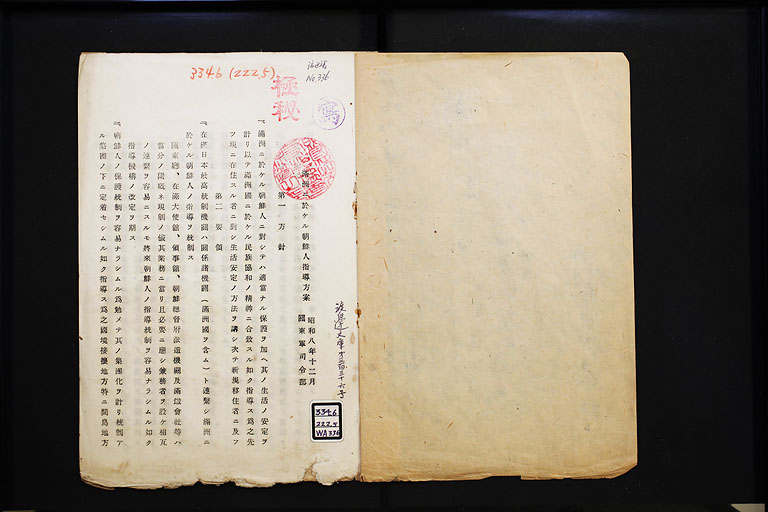 334.6 (222.5)
No.336
極秘
寫
滿洲ニ於ケル朝鮮人指導方案
昭和八年十二月
關東軍司令部
第一 方針
一、滿洲ニ於ケル朝鮮人ニ對シテハ適當ナル保護ヲ加ヘ其ノ生活ノ安定ヲ
計リ以テ滿洲國ニ於ケル民族協和ノ精神ニ合致スル如ク指導ス爲之先
ツ現ニ在住スル者ニ對シ生活安定ノ方法ヲ講シ次テ新規移住者ニ及フ
第二 要領
一、在滿日本最高統制機關ハ關係諸機關(滿洲國ヲ含ム)ト連繫シ滿洲ニ
於ケル朝鮮人ノ指導ヲ統制ス
關東廳、在滿大使館、領事館、朝鮮總督府派遣機關及滿鐵會社等ハ
當分ノ間概ネ現制ノ儘其業務ニ當リ且必要ニ應シ兼務者ヲ設ケ相互
ノ連繫ヲ容易ニスルモ將來朝鮮人ノ指導統制ヲ容易ナラシムル如ク
指導機構ノ改定ヲ期ス
一、朝鮮人ノ保護統制ヲ容易ナラシムル爲勉メテ其ノ集團化ヲ計リ統制ア
ル集團ノ下ニ定着セシムル如ク指導ス爲之國境接壤地方特ニ間島地方
334.6
222.5
WA336